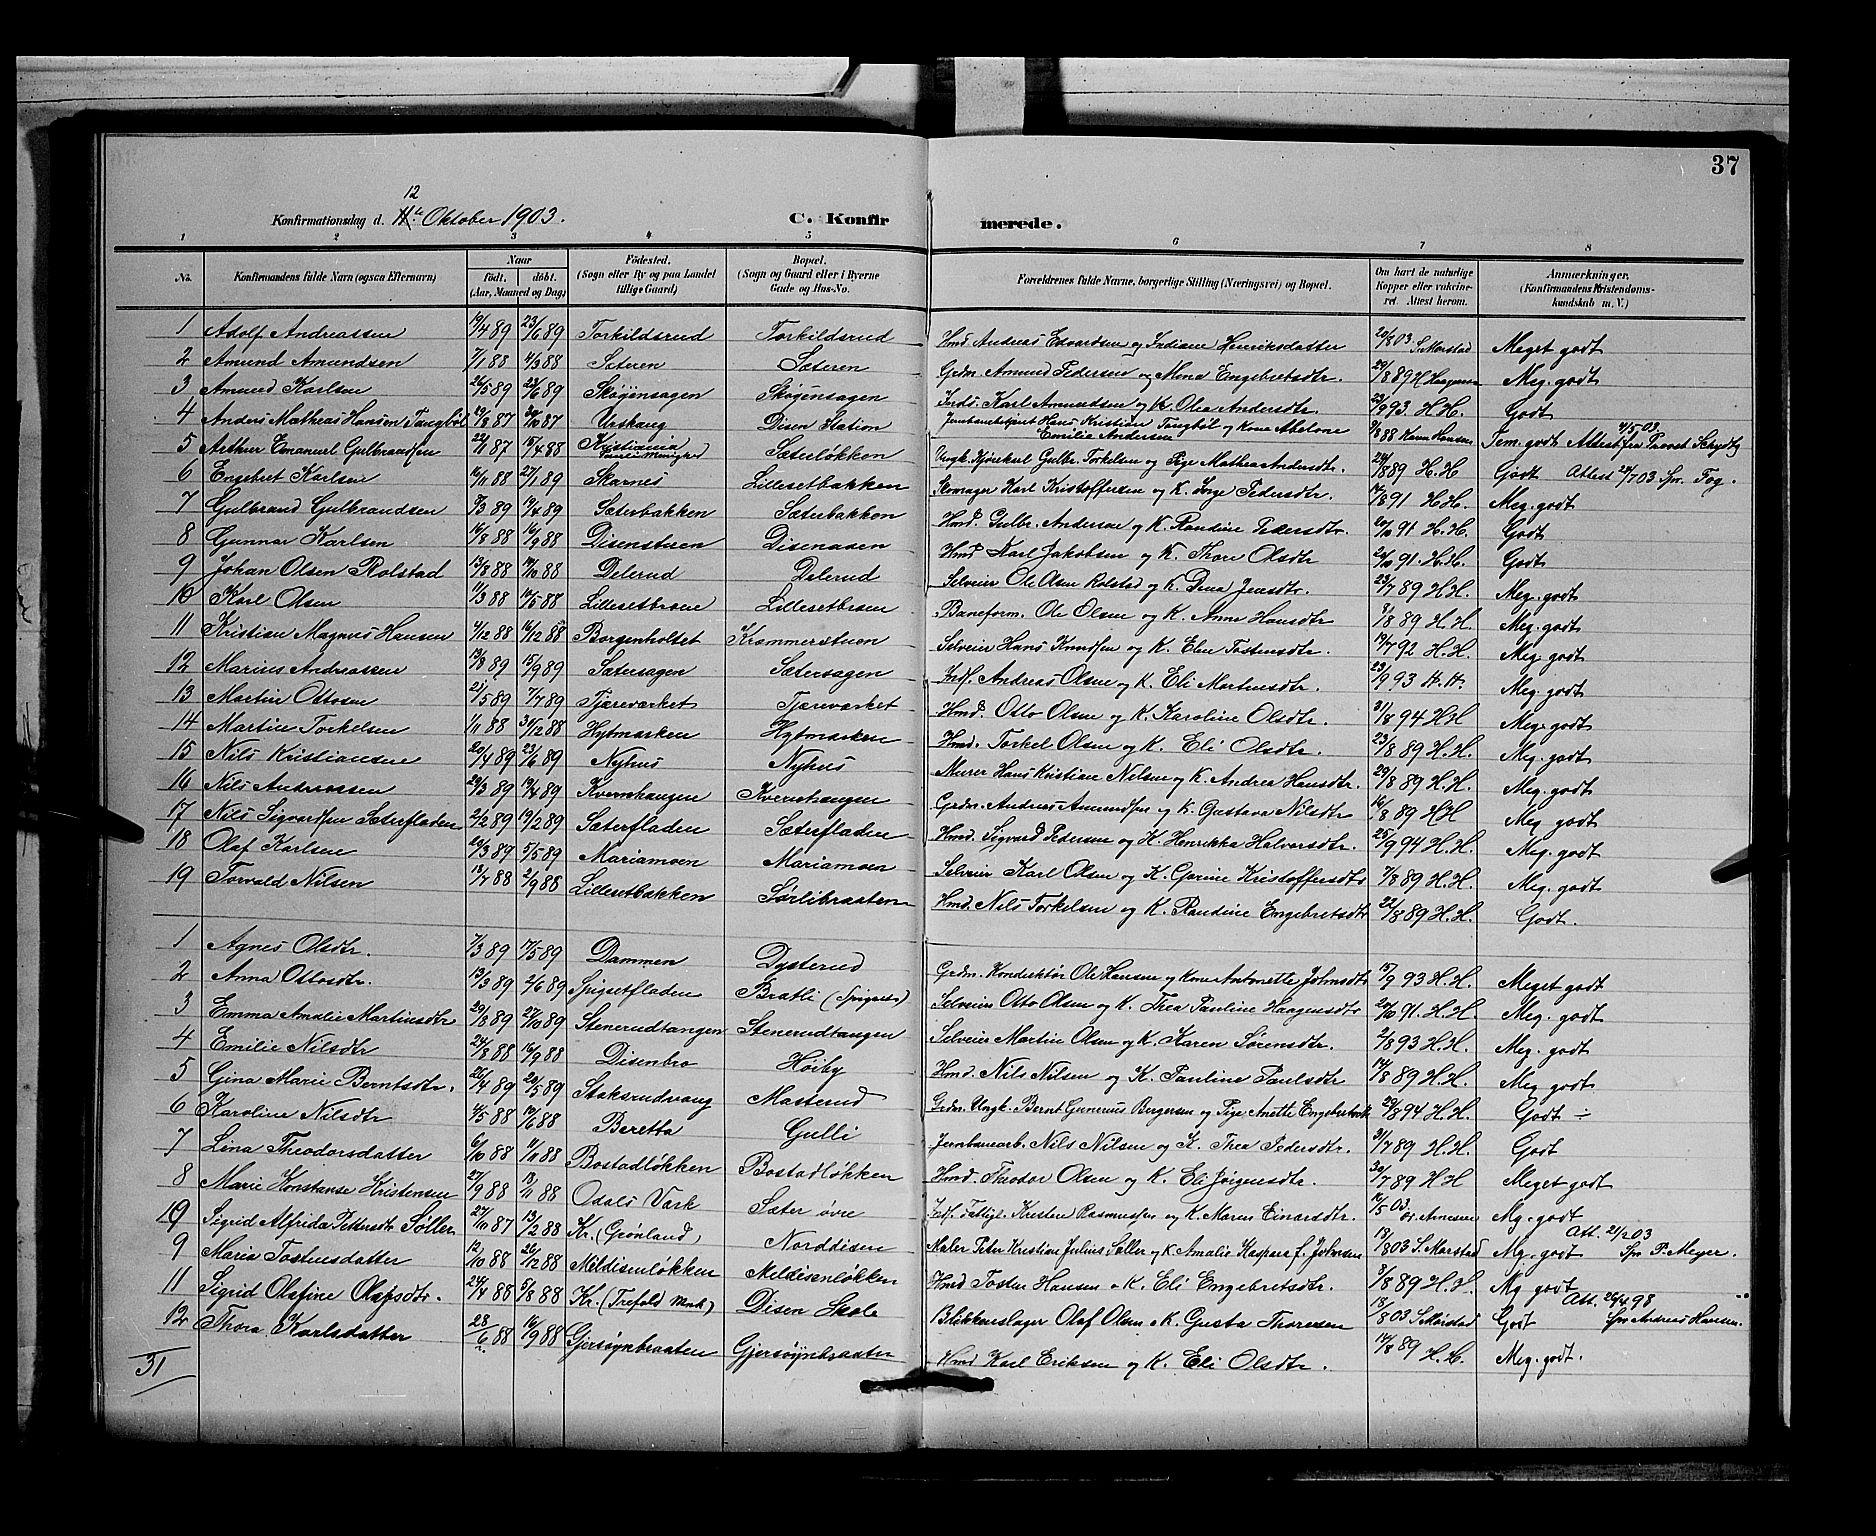 37
12
Konfirmationsdag d. 11te Oktober 1903. C. Konfirmerede.
1 2 3 4 5 6 7 8
No. Konfirmandens fulde Navn (ogsaa Efternavn) Naar født. døbt. (Aar, Maaned og Dag) Fødested. (Sogn eller By og paa Landet tillige Gaard) Bopæl. (Sogn og Gaard eller i Byerne Gade og Hus-No. Forældrenes fulde Navne, borgerlige Stilling (Næringsvei) og Bopæl. Om havt de naturlige Kopper eller vakcineret. Attest herom. Anmærkninger. (Konfirmandens Kristendomskundskab m. V.)
1 Adolf Andreassen 19/4 89 23/6 89 Torkildsrud Torkildsrud Hmd. Andreas Edvardsen og Indiane Henriksdatter 20/8 03 S. Morstad Meget godt
2 Amund Amundsen 7/1 88 4/3 88 Sæteren Sæteren Grdm. Amund Pedersen og Mina Engebretsdtr. 29/8 89 H. Haagensen Meg. godt
3 Amund Karlsen 26/5 89 23/6 89 Skøgensagen Skøgensagen Inds. Karl Amundsen og K. Olia Andersdtr. 23/9 93 H. H. Godt
4 Anders Mathias Hansen Tangbøl 29/8 87 30/10 87 Urskoug Disen Station Jernbanebetjent Hans Kristian Tangbøl og Kone Abelone Emilie Andersen 9/8 88 Karen Hansen Tem. godt Attest fra Provst 4/5 03
5 Arthur Emanuel Gulbrandsen 22/11 87 15/4 88 Kristiania Sæterløkken Ungk. Gulbr. Torkelsen og Pige Mathea Andersdtr. 24/8 89 H. H. Godt Attest 24/7 03 Spr. Fog.
6 Engebret Karlsen 16/11 88 27/1 89 Skarnes Lillesetbakken Skomager Karl Kristoffersen og K. Inge Pedersdtr. 14/8 91 H. H. Meg. godt
7 Gulbrand Gulbrandsen 10/3 89 19/4 89 Sæterbakken Sæterbakken Hmd. Gulbr. Andersen og K. Randine Pedersdtr. 20/10 91 H. H. Godt
8 Gunnar Karlsen 16/8 88 16/9 88 Disenstuen Disenaasen Hmd. Karl Jakobsen og K. Thore Olsdtr 20/10 91. H. H. Godt
9 Johan Olsen Rolstad 13/8 88 14/10 88 Delerud Delerud Selveier Ole Olsen Rolstad og K. Dina Jensdtr. 23/7 89 H. H. Meg. godt
10 Karl Olsen 1/3 88 10/5 88 Lillesetbroen Lillesetbroen Baneform. Ole Olsen og K. Anne Hansdtr 8/8 89 H. H. Meg. godt
11 Kristian Magnus Hansen 4/12 88 16/12 88 Borgenholtet Krammerstuen Selveier Hans Knudsen og K. Eline Tostensdtr. 19/7 92 H. H. Meg. godt
12 Marius Andreassen 13/8 89 15/9 89 Sætersagen Sætersagen Inds. Andreas Olsen og K. Eli Martinsdtr. 23/9 93 H. H. Meg. godt
13 Martin Ottosen 21/5 89 7/7 89 Tjæreværket Tjæreværket Hmd. Otto Olsen og K. Karoline Olsdtr. 31/8 94 H. H. Meg. godt
14 Martin Torkelsen 1/11 88 31/12 88 Hytmarken Hytmarken Hmd. Torkel Olsen og K. Eli Olsdtr. 23/8 89 H. H. Meg. godt
15 Nils Kristiansen 20/4 89 23/6 89 Nyhus Nyhus Murer Hans Kristian Nilsen og K. Andrea Hansdtr. 29/8 89 H. H. Meg. godt
16 Nils Andreassen 29/3 89 19/4 89 Kvernhaugen Kvernhaugen Grdm. Andreas Amundsen og K. Gustava Nilsdtr 16/8 89 H. H Meg. godt
17 Nils Sigvardsen Sæterfladen 2/2 89 19/2 89 Sæterfladen Sæterfladen Hmd. Sigvard Pedersen og K. Henrikka Halvorsdtr. 25/9 94 H. H. Meg. godt
18 Olaf Karlsen 20/3 89 5/5 89 Mariamoen Mariamoen Selveier Karl Olsen og K. Gorine Kristoffersdtr 7/8 89 H. H. Meg. godt
19 Torvald Nilsen 13/7 88 2/9 88 Lillesetbakken Sørlibraaten Hmd. Nils Torkelsen og K. Randine Engebretsdtr 22/8 89 H. H. Godt.
1 Agnes Olsdtr. 7/3 89 17/5 89 Dammen Dysterud Grdm. Konduktør Ole Hansen og Kone Antonette Johnsdtr 15/9 93 H. H. Meget godt
2 Anna Ottosdtr. 13/3 89 2/6 89 Spigsetfladen Bratli Selveier Otto Olsen og K. Thea Pauline Haagensdtr 20/10 91. H. H. Meg. godt
3 Emma Amalie Martinsdtr 29/8 89 27/10 89 Stenerudtangen Stenerudtangen Selveier Martin Olsen og K. Karen Sørensdtr. 2/8 93 H. H. Meg. godt
4 Emilie Nilsdtr 24/8 88 16/9 88 Disenbro Høiby Hmd. Nils Nilsen og K. Pauline Paulsdtr 14/8 89 H. H. Meg godt
5 Gina Marie Berntsdtr. 26/4 89 20/5 89 Staksrudvang Masterud Grdm. Ungk. Bernt Gunerius Bergersen og Pige Anette Engebretsdtr 29/8 94 H. H. Godt ÷
6 Karoline Nilsdtr 4/5 88 10/6 88 Beretta Gulli Jernbanearb. Nils Nilsen og K. Thea Pedersdtr. 31/7 89 H. H. Godt
7 Lina Theodorsdatter 6/10 88 11/11 88 Bostadløkken Bostadløkken Hmd. Theodor Olsen og K. Eli Jørgensdtr 30/7 89 H. H Meget godt
8 Marie Konstanse Kristensen 27/9 88 18/11 88 Odals Værk Sæter øvre Inds. Fattigl. Kristen Rasmussen og K. Maren Einarsdtr. 10/5 03 Mg. godt
10 Sigrid Alfrida Pettersdtr Søller 27/10 87 13/2 88 Kr. (Grønland) Norddisen Maler Peter Kristian Julius Søller og K. Amalie Kaspara f. Johnsen 13/8 03 S. Morstad Mg. godt Att. 21/2 03 Spr P. Meyer.
9 Maria Tostensdatter 12/10 88 26/12 88 Mildisenløkken Meldisenløkken Hmd Tosten Hansen og K. Eli Engebretsdtr. 8/8 89 H. H. Mg. godt
11 Sigrid Olafine Olafsdtr. 24/4 88 5/8 88 Kr. (Trefold Mnh) Disen Skole Blikkenslager Olaf Olsen og K. Gusta Thoresen 18/8 03 S. Morstad Godt Att. 26/4 98 Spr Andreas Hansen.
12 Thora Karlsdatter 28/6 88 16/9 88 Gjersøynbraaten Gjersøynbraaten Hmd Karl Eriksen og K. Eli Olsdtr. 14/8 89 H. H. Meg. godt.
31